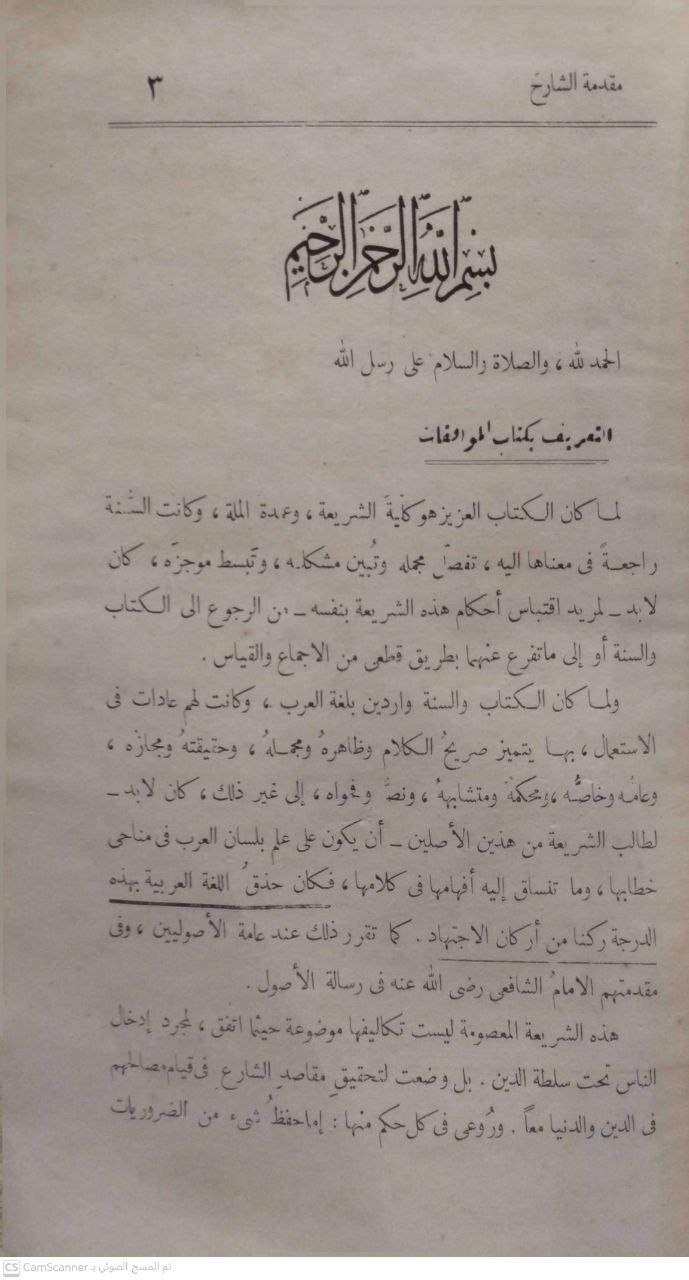 مقدمة الشارح ٣
بسم الله الرحمن الرحيم
الحمد لله ، والصلاة والسلام على رسل الله
التعريف بكتاب الموافقات
لما كان الكتاب العزيز هو كليةَ الشريعة ، وعمدة الملة ، وكانت السُّنة
راجعةً فى معناها اليه ، تفصّل مجمله وتُبين مشكله ، وتَبسط موجزَه ، كان
لابد ــ لمريد اقتباس أحكام هذه الشريعة بنفسه ــ من الرجوع الى الكتاب
والسنة أو إلى ماتفرع عنهما بطريق قطعى من الاجماع والقياس .
ولما كان الكتاب والسنة واردين بلغة العرب ، وكانت لهم عادات فى
الاستعمال ، بها يتميز صريحُ الكلام وظاهرهُ ومجملهُ ، وحقيقتهُ ومجازُه ،
وعامُه وخاصُّه ، ومحكمُهُ ومتشابههُ ، ونصُّه وفحواه ، إلى غير ذلك ، كان لابد ــ
لطالب الشريعة من هذين الأصلين ــ أن يكون على علم بلسان العرب فى مناحى
خطابها ، وما تنساق إليه أفهامها فى كلامها ، فكان حذقُ اللغة العربية بهذه
الدرجة ركنا من أركان الاجتهاد . كما تقرر ذلك عند عامة الأصوليين ، وفى
مقدمتهم الامامُ الشافعى رضى الله عنه فى رسالة الأصول .
هذه الشريعة المعصومة ليست تكاليفها موضوعة حيثما اتفق ، لمجرد إدخال
الناس تحت سلطة الدين . بل وضعت لتحقيقِ مقاصدِ الشارع فى قيام مصالحهم
فى الدين والدنيا معاً . ورُوعى فى كل حكم منها : إما حفظُ شىء من الضروريات
CS CamScanner تم المسح الضوئي بـ